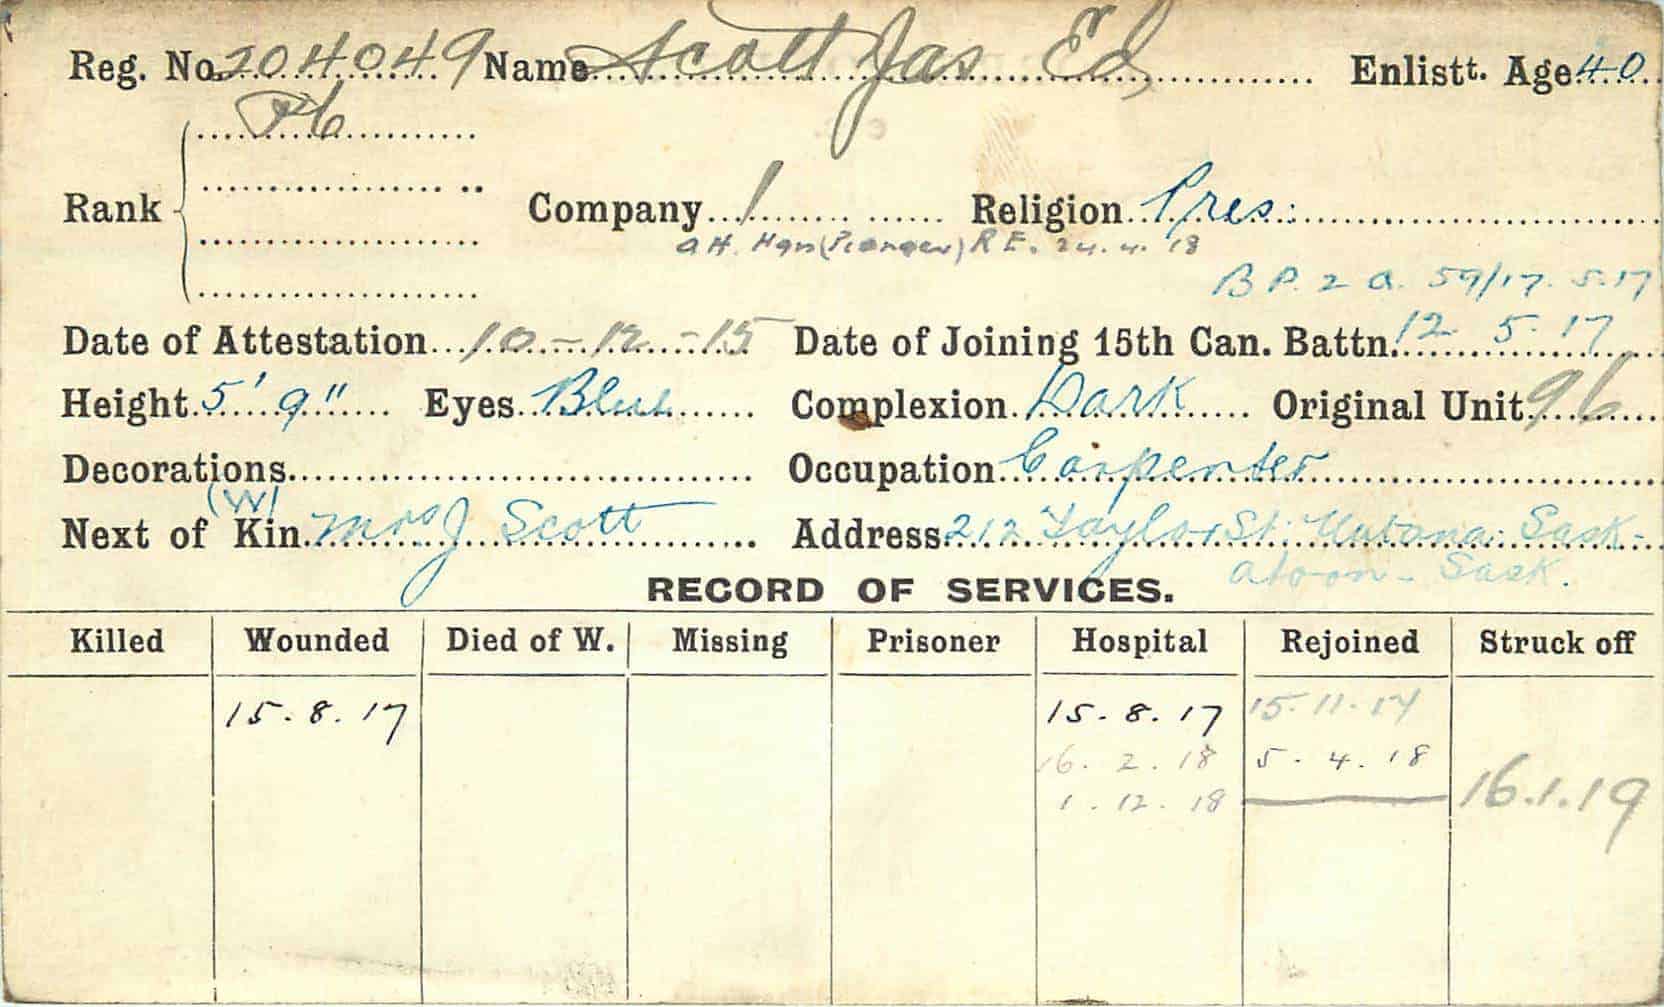 Reg. No. 204049 Name Scott Jas Ed, Enlistt. Age 40
Pte
Rank Company 1 Religion Pres:
R E. 24. 4. 18
B P. 2 a. 59/17. 5.17
Date of Attestation 10-12-15 Date of Joining 15th Can. Battn. 12 5. 17
Height 5' 9" Eyes Blue Complexion Dark Original Unit 96
Decorations Occupation Carpenter
(W)
Next of Kin Mrs J Scott Address 212 Taylor St: Nutana: Sask-
atoon - Sask.
RECORD OF SERVICES.
Killed Wounded Died of W. Missing Prisoner Hospital Rejoined Struck off
15. 8. 17 15. 8. 17 15. 11. 17
16. 2. 18 5. 4. 18
1. 12. 18 16.1.19